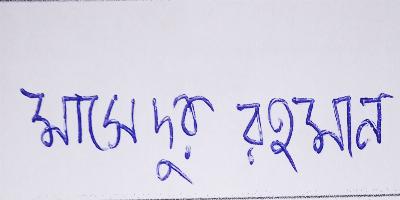 মাসেদুর রহমান